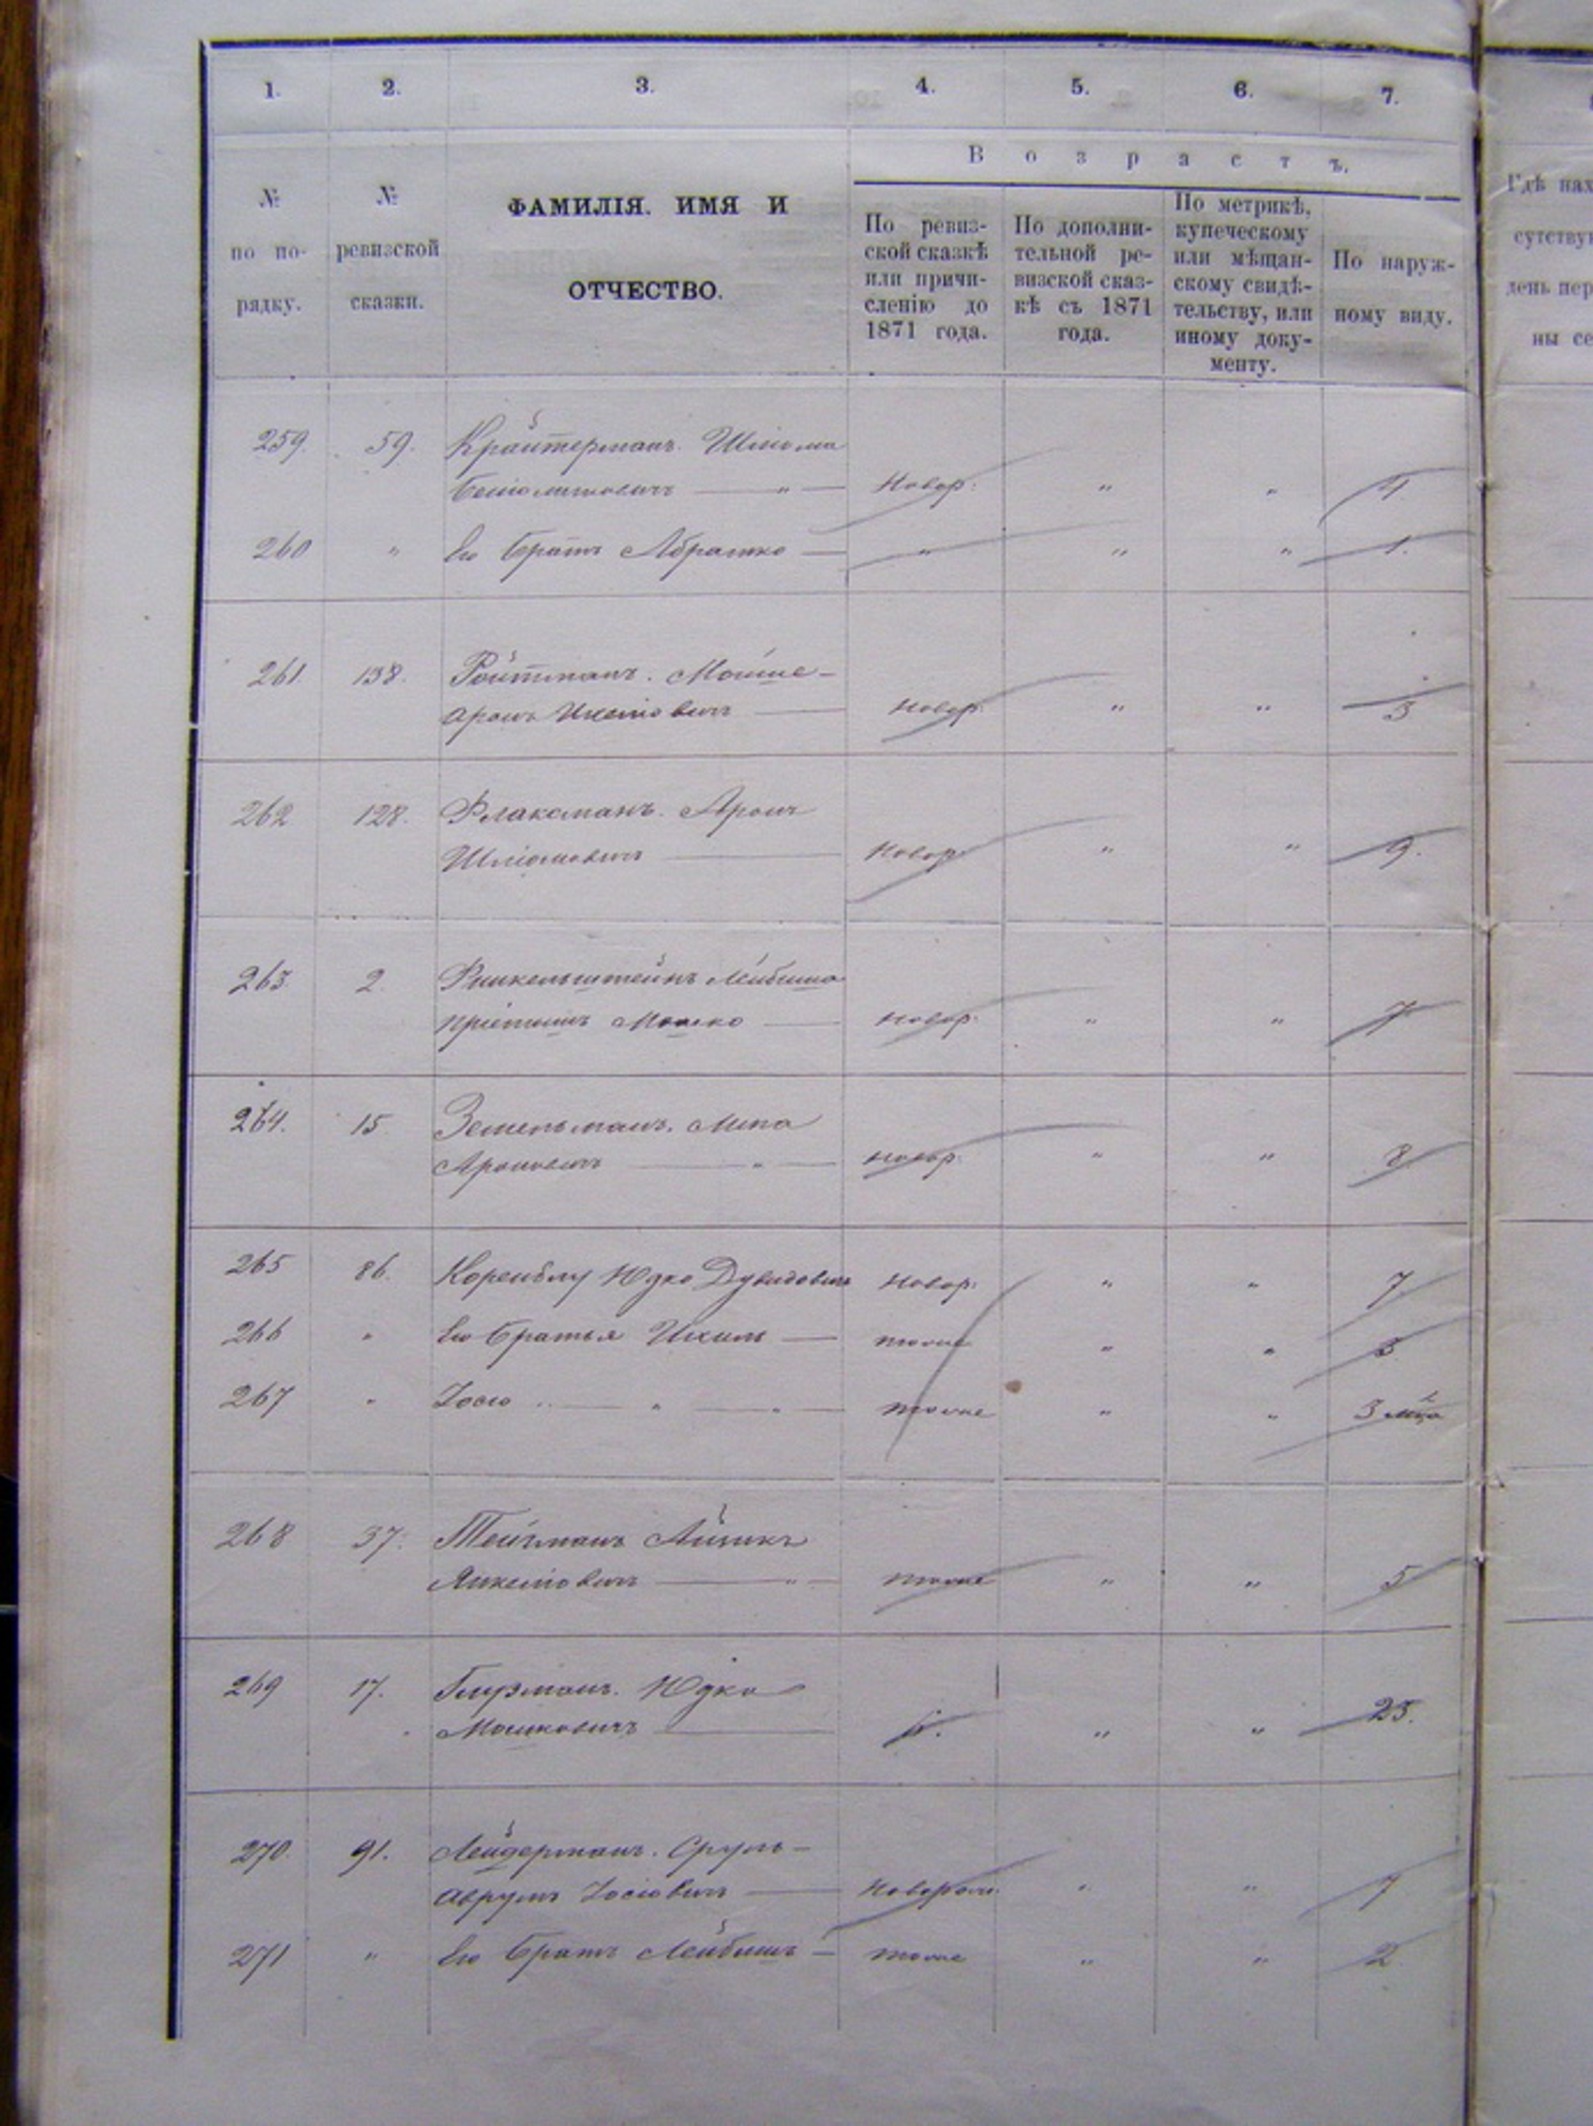 1. 2. 3. 4. 5. 6. 7.
В о з р а с т ъ.
№ по по-
рядку.
№
ревизской
сказки.
ФАМИЛІЯ. ИМЯ И
ОТЧЕСТВО.
По ревиз-
ской сказкѣ
или причи-
сленію до
1871 года.
По дополни-
тельной ре-
визской сказ-
кѣ съ 1871
года.
По метрикѣ,
купеческому
или мѣщан-
скому свидѣ-
тельству, или
иному доку-
менту.
По наруж-
ному виду.
Гдѣ нах
сутству
день пер
ны се
259. 59. Крайтерманъ. Шліома
Беніоминовичъ — " — Новор: " " 4
260 " Его братъ Абрамко — " " " 1.
261 138. Ройтманъ. Мойше-
Аронъ Ихелювичъ — Новор: " " 3
262 128. Флаксманъ. Аронъ
Шліомовичъ — Новор: " " 9.
263 2. Финкельштейнъ Лейбиша
пріемышъ Мошко — Новор: " " 7
264. 15 Земельманъ.
Ароновичъ — " — Новор: " " 8
265 86. Коренблу Юдко Дувидовичъ Новор: " " 7
266 " Его братья Ихиль — тоже " " 3
267 " Іосіо " — " — " — тоже " " 3 м̃ца
268 37. Тейчманъ Айзикъ
Янкелювичъ — " — тоже " " 5
269 17. Гоюрманъ. Юдко
Мошковичъ — " " 23.
270 91. Лейдерманъ. Сруль-
Аврумъ Іосіовичъ — Новорож. " " 7
271 " Его братъ Лейбишъ — тоже " " 2